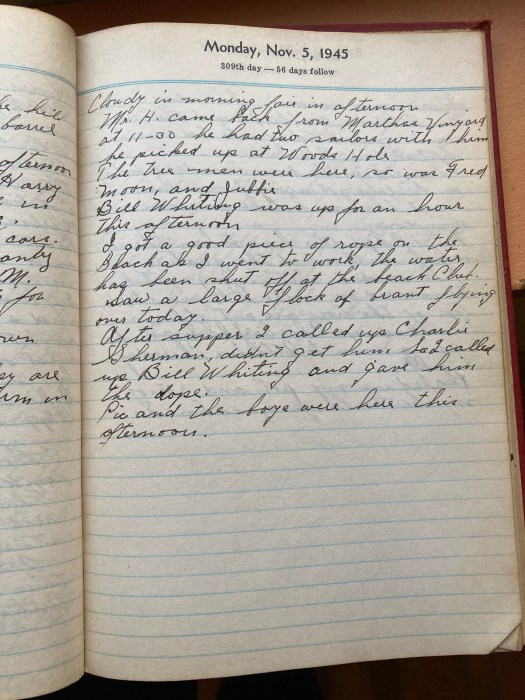 Monday, Nov. 5, 1945
309th day — 56 days follow
Cloudy in morning fair in afternoon
Mr. H. came back from Marthas Vinyard
at 11-30 he had two sailors with him
he picked up at Woods Hole
The tree men were here, so was Fred
Moon, and
Bill Whiting was up for an hour
this afternoon
I got a good piece of rope on the
Beach as I went to work, the water
has been shut off at the beach Club.
Saw a large flock of brant flying
over today.
After supper I called up Charlie
Sherman, didn't get him, so I called
up Bill Whiting and gave him
the dope.
Pic and the boys were here this
afternoon.
barrel
afternoon
Harry
in
cars.
M.
for
are
in